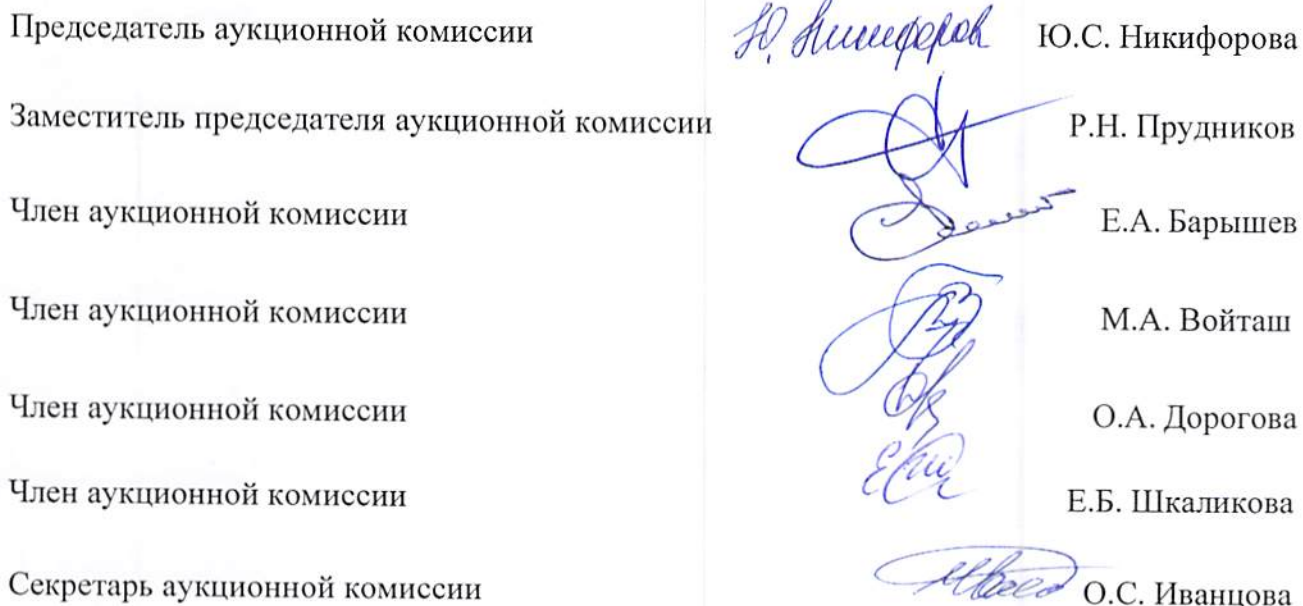 Председатель аукционной комиссии Ю. Никифоров Ю.С. Никифорова
Заместитель председателя аукционной комиссии Р.Н. Прудников
Член аукционной комиссии Е.А. Барышев
Член аукционной комиссии М.А. Войташ
Член аукционной комиссии О.А. Дорогова
Член аукционной комиссии Е.Б. Шкаликова
Секретарь аукционной комиссии О.С. Иванцова